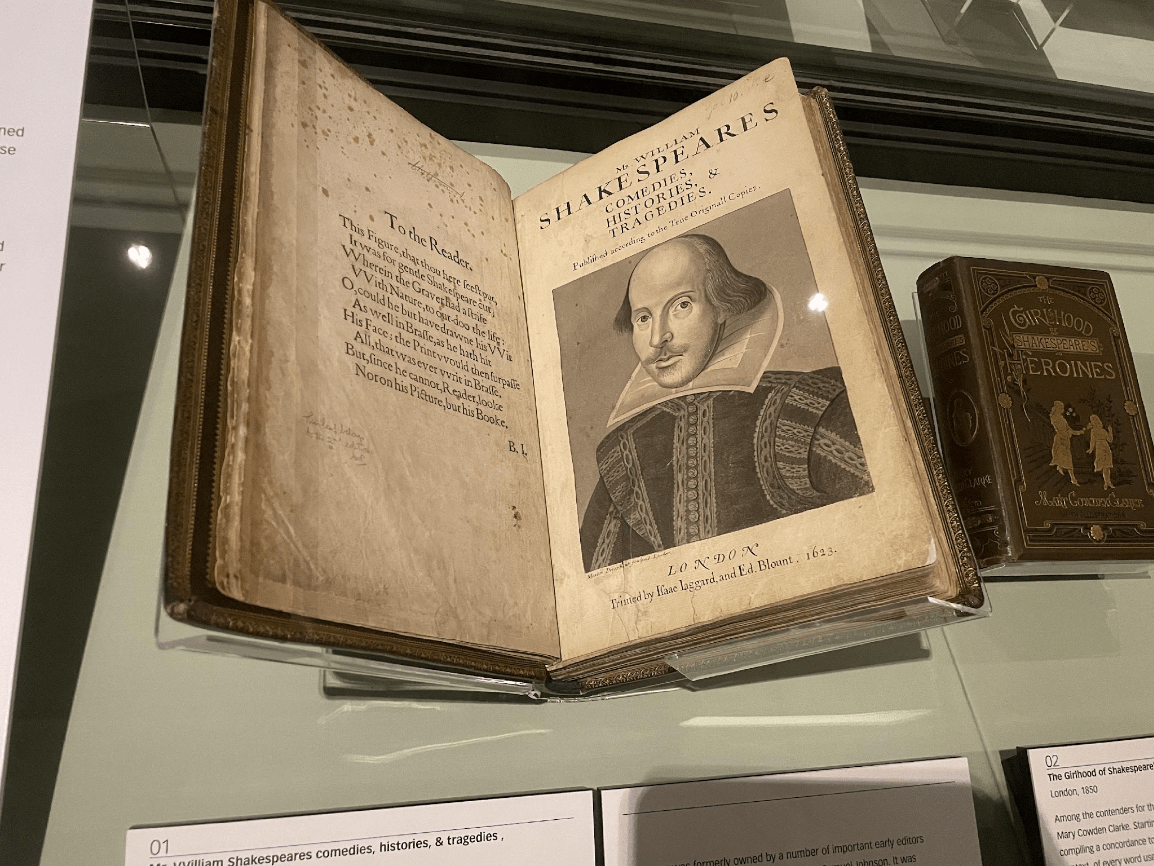 ned
se
d
r
To the Reader.
This Figure, that thou here seest put,
It was for gentle Shakespeare cut;
Wherein the Graver had a strife
VVith Nature, to out-doo the life:
O, could he but have drawne his VVit
As well in Brasse, as he hath hit
His Face; the Print vvould then surpasse
All, that was ever vvrit in Brasse,
But, since he cannot, Reader, looke
Not on his Picture, but his Booke.
B. I.
Mr. WILLIAM
SHAKESPEARES
COMEDIES,
HISTORIES, &
TRAGEDIES.
Published according to the True Originall Copies.
LONDON
Printed by Isaac Iaggard, and Ed. Blount. 1623.
THE
GIRLHOOD
OF
SHAKESPEARE'S
HEROINES
MARY COWDEN CLARKE
CLARKE
01
Mr. VVilliam Shakespeares comedies, histories, & tragedies ,
was formerly owned by a number of important early editors
Johnson. It was
02
The Girlhood of Shakespeare'
London, 1850
Among the contenders for th
Mary Cowden Clarke. Startin
compiling a concordance to
of every word us